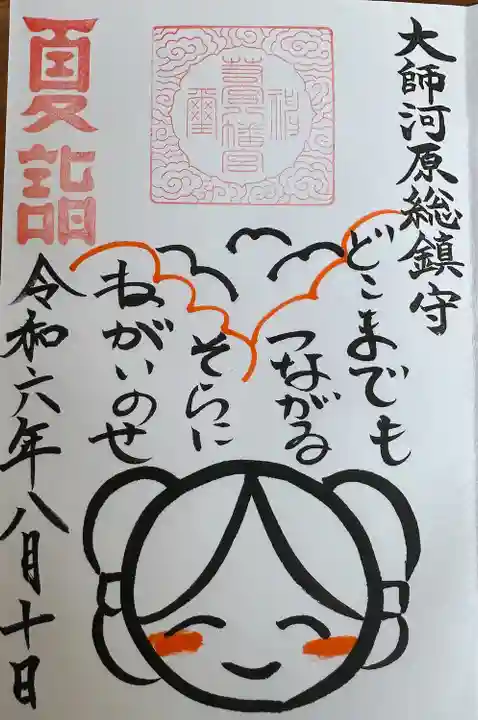 大師河原総鎮守
どこまでも
つながる
そらに
ねがいのせ
夏詣
令和六年八月十日